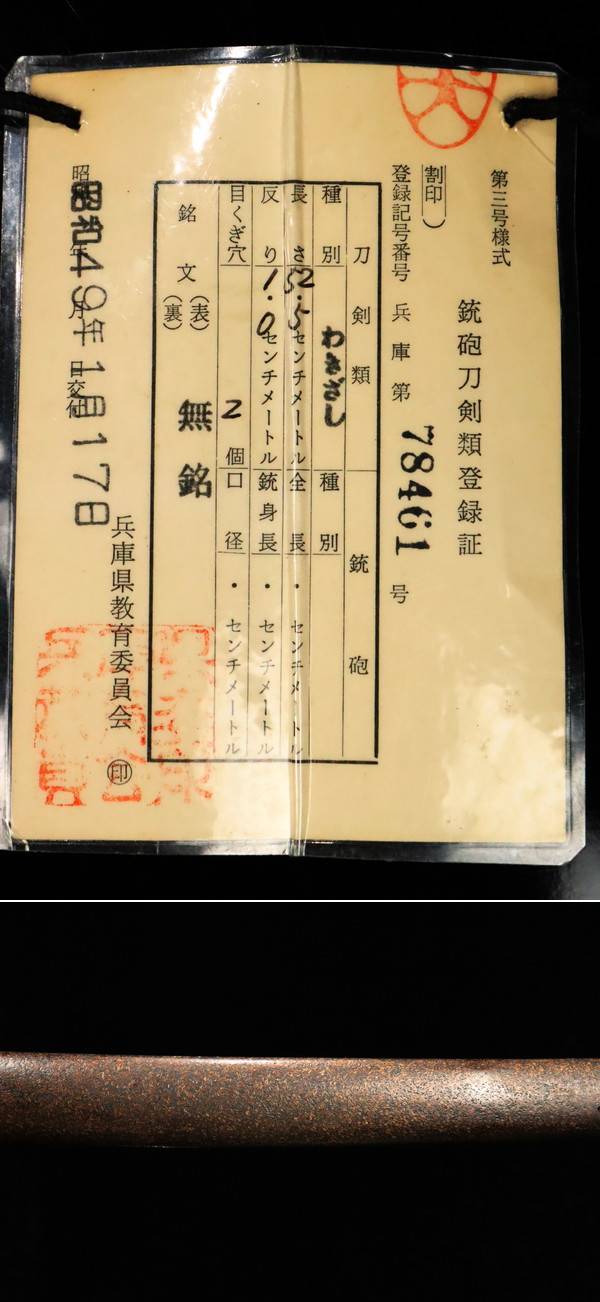 第三号様式
銃砲刀剣類登録証
割印)
登録記号番号 兵庫第 78461 号
刀剣類 銃砲
種別 わきざし 種別
長さ 52.5 センチメートル 全長 ・ センチメートル
反り 1.0 センチメートル 銃身長 ・ センチメートル
目くぎ穴 2 個 口径 ・ センチメートル
銘文 (表) (裏) 無銘
昭和49年1月17日 交付
兵庫県教育委員会 印